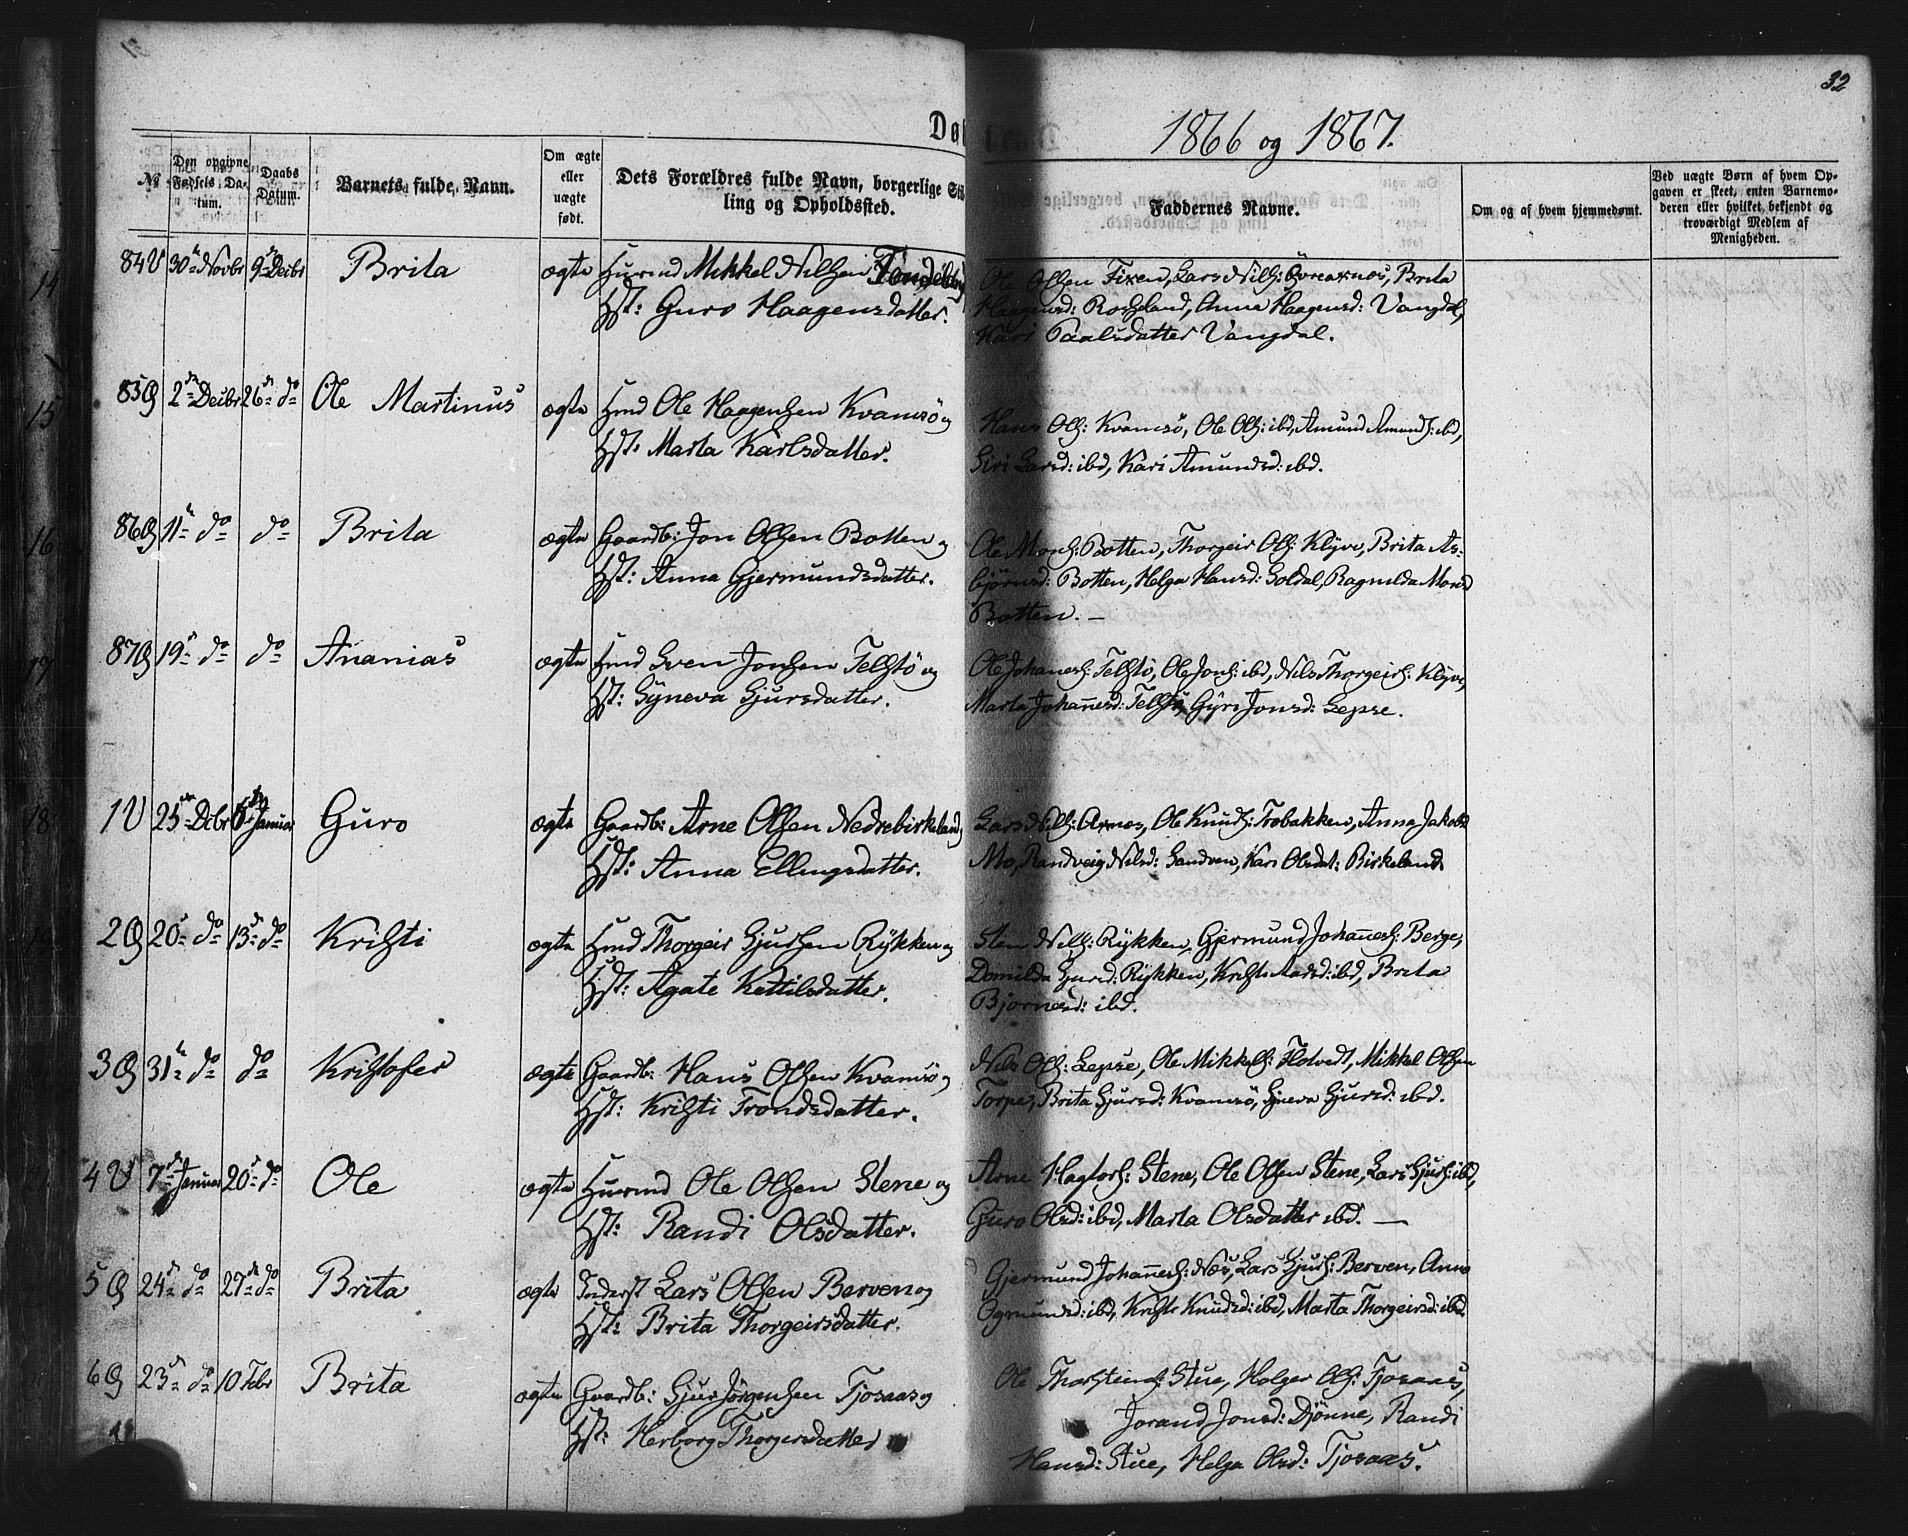 32
Døb
1866 og 1867.
№
Den opgivne Fødsels Datum.
Daabs Datum.
Barnets fulde Navn.
Om ægte eller uægte født.
Dets Forældres fulde Navn, borgerlige Stilling og Opholdssted.
Faddernes Navne.
Om og af hvem hjemmedømt.
Ved uægte Børn af hvem Opgaven er skeet, enten Barnemoderen eller hvilket bekjendt og troværdigt Medlem af Menigheden.
84 30te Novbr 9de Decbr Brita ægte Husmd Mikkel Nilsen
Hst: Guro Haagensdatter.
Ole Olsen Fixen, Lars Nils: Brita
Haagensd: Rosseland, Anna Haagensd: Vangdal,
Kari Paalsdatter Vangdal.
85 2den Decbr 26de do Ole Martinus ægte Hmd Ole Haagensen Kvamsö og
Hst: Marta Karlsdatter.
Hans Ols: Kvamsö, Ole Ols: ibd, Amund Amunds: ibd,
Siri Larsd: ibd, Kari Amundsd: ibd.
86 11te do do Brita ægte Gaardb: Jon Olsen Botten og
Hst: Anna Gjermundsdatter.
Ole Mons: Botten, Thorgeir Ols: Klyve, Brita As-
björnsd: Botten, Helga Hansd: Soldal, Ragnilda Monsd
Botten. —
87 19de do do Ananias ægte Hmd Sven Jonsen Telstö og
Hst: Syneva Sjursdatter.
Ole Johaness: Telstö, Ole Jons: ibd, Nils Thorgeirs: Klyve,
Marta Johannesd: Telstö, Gyri Jonsd: Lepse.
1 25de Dcbr 6te Januar Guro ægte Gaardb: Arne Olsen Nedrebirkeland,
Hst: Anna Ellingsdatter.
Lars Nils: Axnes, Ole Knuds: Trobakken, Anna Jakobsd
Mo, Randveig Nilsd: Sandven, Kari Olsdat: Birkeland
2 20de do 13de do Kristi ægte Hmd Thorgeir Sjursen Rykken og
Hst: Agate Kettilsdatter.
Sten Nils: Rykken, Gjermund Johaness: Berge,
Domilda Sjursd: Rykken, Kristi ibd, Brita
Bjornesd: ibd.
3 31te do do Kristofer ægte Gaardb: Hans Olsen Kvamsö og
Hst: Kristi Trondsdatter.
Nils Ols: Lepse, Ole Mikkels: Flotvedt, Mikkel Olsen
Torpe, Brita Sjursd: Kvamsö, Sjneva Sjursd: ibd.
4 7de Januar 20de do Ole ægte Husmd Ole Olsen Stene og
Hst: Randi Olsdatter.
Arne Hagtors: Stene, Ole Olsen Stene, Lars Sjurs: ibd,
Guro Olsd: ibd, Marta Olsdatter ibd. —
5 24de do 27de do Brita ægte Inderst Lars Olsen Berven og
Hst: Brita Thorgeirsdatter.
Gjermund Johanness: Næs, Lars Sjurs: Berven, Anna
Ogmundsd: ibd, Kristi Knudsd: ibd, Marta Thorgeirsd: ibd
6 23de do 10 Febr Brita ægte Gaardb: Sjur Jörgensen Tjosaas og
Hst: Herborg Thorgersdatter
Ole Thorsteins: Stue, Holger Ols: Tjosaas,
Jorand Jonsd: Djönne, Randi
Hansd: Stue, Helga Olsd: Tjosaas.